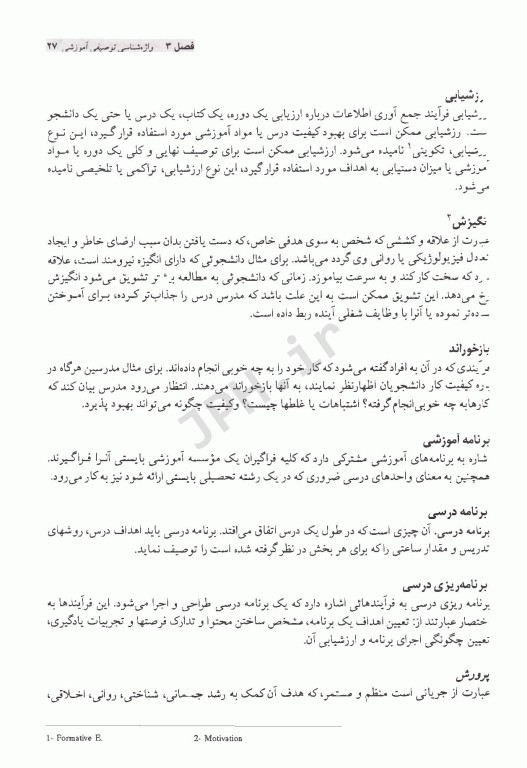 فصل ۳ واژه‌شناسی توصیفی آموزشی ۲۷
رزشیابی
رشیابی فرآیند جمع آوری اطلاعات درباره ارزیابی یک دوره، یک کتاب، یک درس یا حتی یک دانشجو
ست. رزشیابی ممکن است برای بهبود کیفیت درس یا مواد آموزشی مورد استفاده قرار گیرد، این نوع
تکوینی۱ نامیده می‌شود. ارزشیابی ممکن است برای توصیف نهایی و کلی یک دوره یا مواد
موزشی یا میزان دستیابی به اهداف مورد استفاده قرار گیرد، این نوع ارزشیابی، تراکمی یا تلخیصی نامیده
می‌شود.
نگیزش۲
عبارت از علاقه و کششی که شخص به سوی هدفی خاص، که دست یافتن بدان سبب ارضای خاطر و ایجاد
تعادل فیزیولوژیکی یا روانی وی گردد می‌باشد. برای مثال دانشجوئی که دارای انگیزه نیرومند است، علاقه
دارد که سخت کار کند و به سرعت بیاموزد. زمانی که دانشجوئی به مطالعه تر تشویق می‌شود انگیزش
رخ می‌دهد. این تشویق ممکن است به این علت باشد که مدرس درس را جذاب‌تر کرده، برای آموختن
ساده‌تر نموده یا آنرا با وظایف شغلی آینده ربط داده است.
بازخوراند
فرآیندی که در آن به افراد گفته می‌شود که کار خود را به چه خوبی انجام داده‌اند. برای مثال مدرسین هرگاه در
باره کیفیت کار دانشجویان اظهارنظر نمایند، به آنها بازخوراند می‌دهند. انتظار می‌رود مدرس بیان کند که
کارهابه چه خوبی انجام گرفته؟ اشتباهات یا غلطها چیست؟ وکیفیت چگونه می‌تواند بهبود پذیرد.
برنامه آموزشی
شاره به برنامه‌های آموزشی مشترکی دارد که کلیه فراگیران یک مؤسسه آموزشی بایستی آنرا فراگیرند.
همچنین به معنای واحدهای درسی ضروری که در یک رشته تحصیلی بایستی ارائه شود نیز به کار می‌رود.
برنامه درسی
برنامه درسی. آن چیزی است که در طول یک درس اتفاق می‌افتد. برنامه درسی باید اهداف درس، روشهای
تدریس و مقدار ساعتی را که برای هر بخش در نظر گرفته شده است را توصیف نماید.
برنامه‌ریزی درسی
برنامه ریزی درسی به فرآیندهائی اشاره دارد که یک برنامه درسی طراحی و اجرا می‌شود. این فرآیندها به
ختصار عبارتند از: تعیین اهداف یک برنامه، مشخص ساختن محتوا و تدارک فرصتها و تجربیات یادگیری،
تعیین چگونگی اجرای برنامه و ارزشیابی آن.
پرورش
عبارت از جریانی است منظم و مستمر، که هدف آن کمک به رشد جسمانی، شناختی، روانی، اخلاقی،
1- Formative E. 2- Motivation
JPH.ir